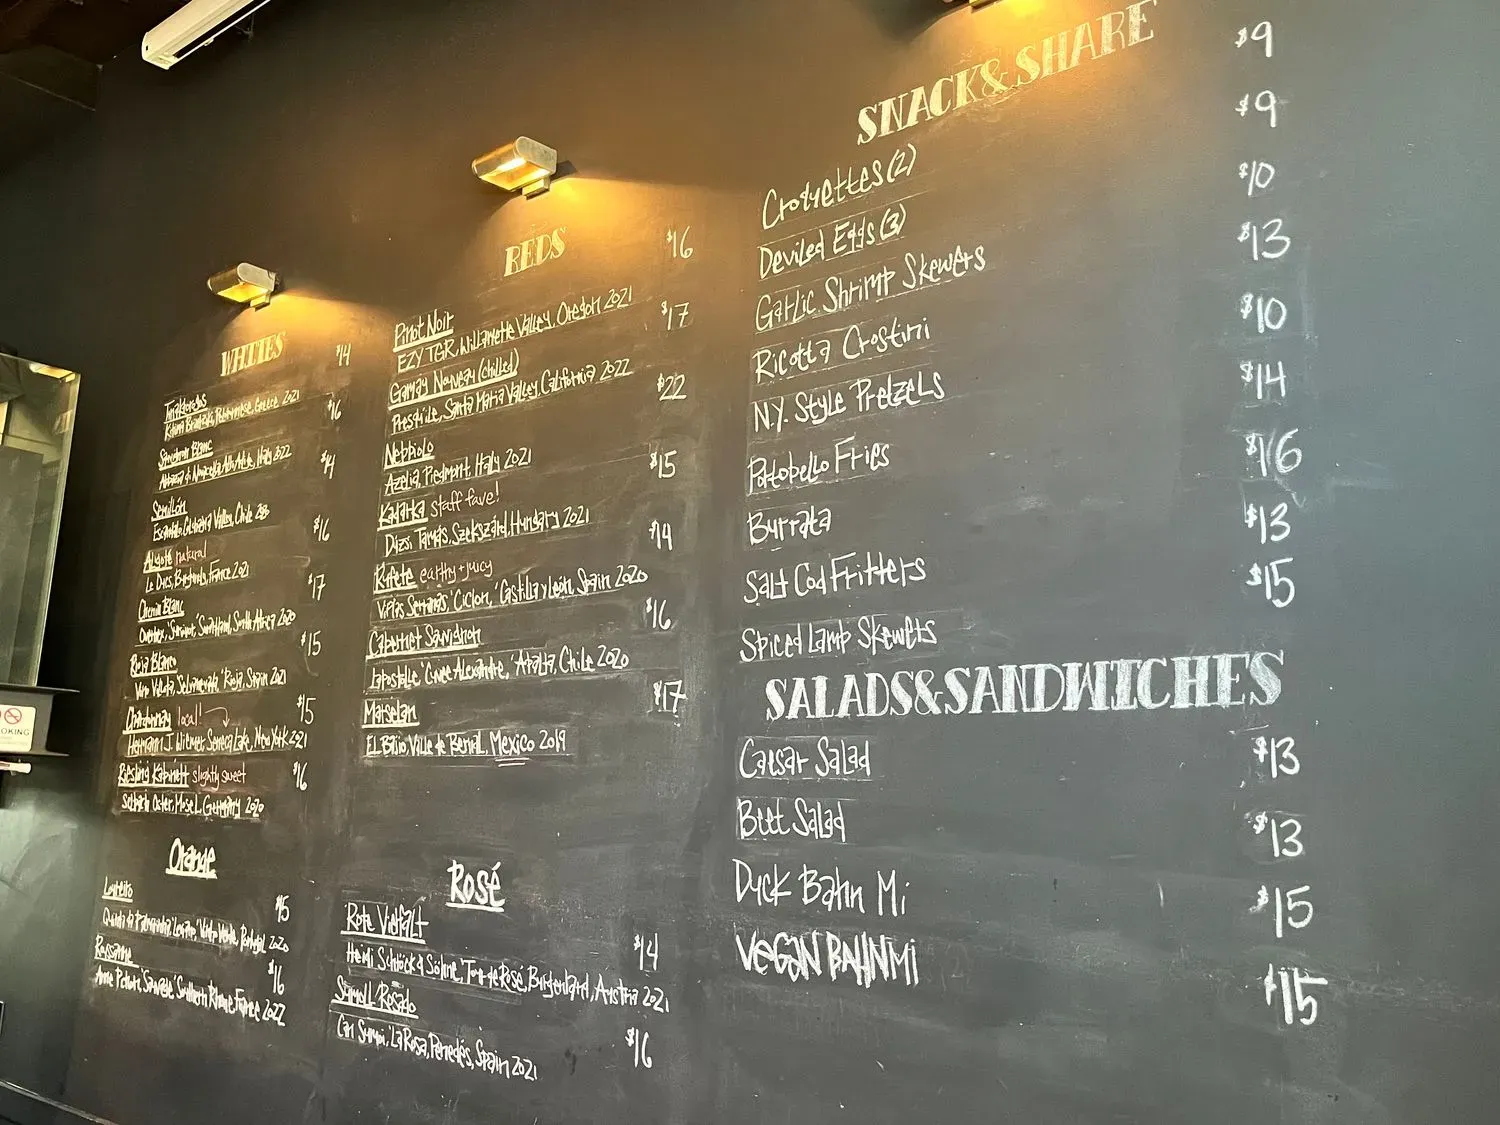 WHITES
$14
Kdima Brintziki, Peloponnese, Greece 2021
$16
Sauvignon Blanc
Abbazia di Novacella, Alto Adige, Italy 2022
$14
Semillón
Valley, Chile
$16
Aligoté natural
Le Ducs, Burgundy, France 2021
$17
Chenin Blanc
South Africa 2020
$15
Rioja Blanco
Rioja, Spain 2021
$15
Chardonnay local!
Hermann J. Wiemer, Seneca Lake, New York 2021
$16
Riesling Kabinett slightly sweet
Selbach Oster, Mosel, Germany 2020
Orange
Loureiro
$15
Portugal 2020
Roussanne
$16
Southern Rhone, France 2022
REDS
$16
Pinot Noir
EZY TGR, Willamette Valley, Oregon 2021
$17
Gamay Nouveau (chilled)
Presqu'ile, Santa Maria Valley, California 2022
$22
Nebbiolo
Azelia, Piedmont, Italy 2021
$15
Kadarka staff fave!
Dúzsi Tamás, Szekszárd, Hungary 2021
$14
Rufete earthy + juicy
Viñas Serranas, 'Ciclon,' Castilla y León, Spain 2020
$16
Cabernet Sauvignon
Lapostolle, 'Cuvee Alexandre,' Apalta, Chile 2020
$17
Marselan
El Bajio, Ville de Bernal, Mexico 2019
Rosé
Rote Vielfalt
$14
Heidi Schröck & Söhne, 'Tour de Rosé,' Burgenland, Austria 2021
Sumoll Rosado
$16
Can Sumoi, 'La Rosa,' Penedés, Spain 2021
SNACK&SHARE
$9
Croquettes (2)
$9
Deviled Eggs (3)
$10
Garlic Shrimp Skewers
$13
Ricotta Crostini
$10
N.Y. Style Pretzels
$14
Portobello Fries
$16
Burrata
$13
Salt Cod Fritters
$15
Spiced Lamb Skewers
SALADS&SANDWICHES
Caesar Salad
$13
Beet Salad
$13
Duck Bahn Mi
$15
VEGAN BAHN Mi
$15